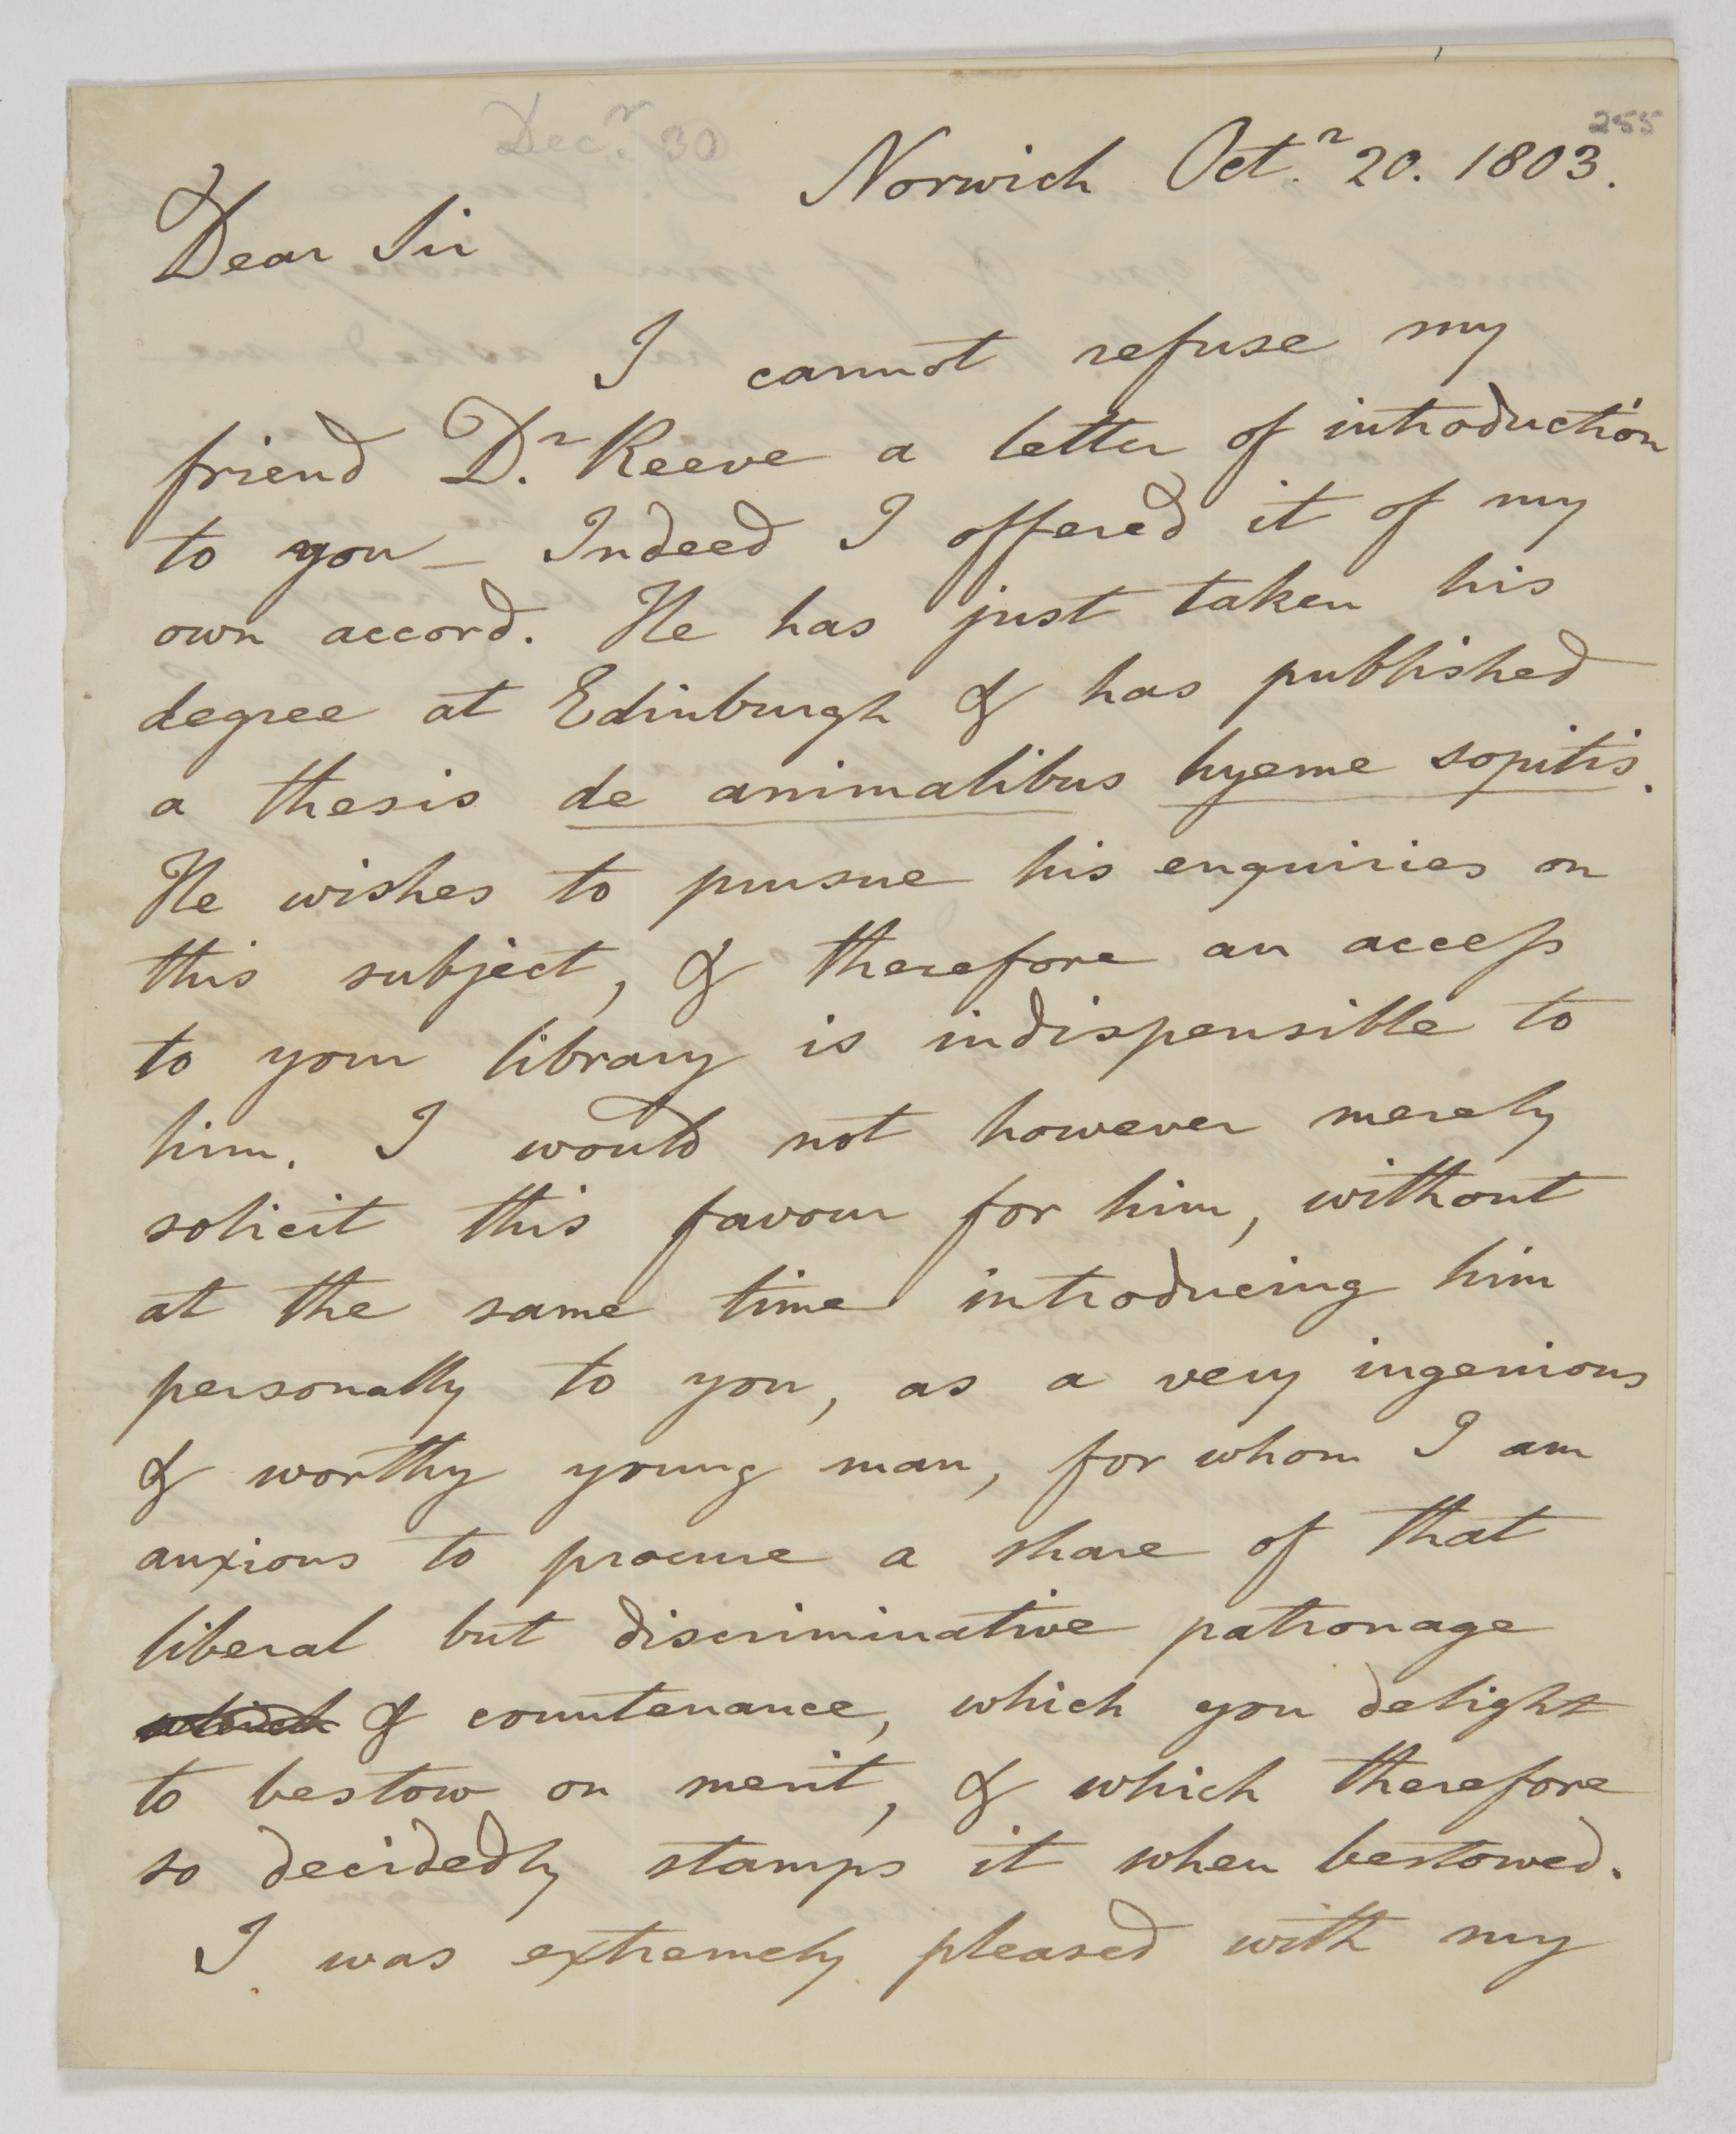 255
Dec.r 30
Norwich Oct.r 20. 1803.
Dear Sir
I cannot refuse my
friend D.r Reeve a letter of introduction
to you – Indeed I offered it of my
own accord. He has just taken his
degree at Edinburgh & has published
a thesis de animalibus hyeme sopitis.
He wishes to pursue his enquiries on
this subject, & therefore an access
to your library is indispensible to
him. I would not however merely
solicit this favour for him, without
at the same time introducing him
personally to you, as a very ingenious
& worthy young man, for whom I am
anxious to procure a share of that
liberal but discriminative patronage
& countenance, which you delight
to bestow on merit, & which therefore
so decidedly stamps it when bestowed.
I was extremely pleased with my